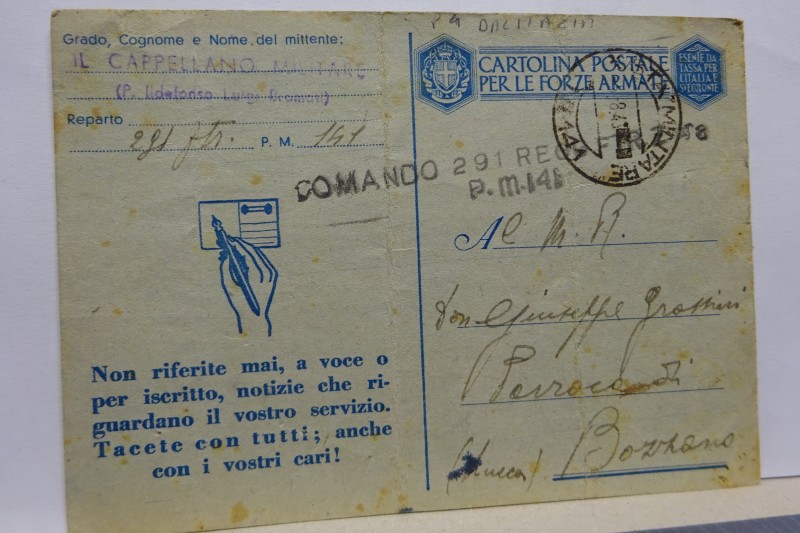 P 4 DALMAZIA
Grado, Cognome e Nome del mittente:
IL CAPPELLANO MILITARE
(P. Ildefonso Luigi
Reparto 291 ftr. P. M. 141
CARTOLINA POSTALE
PER LE FORZE ARMATE
ESENTE DA
TASSA PER
L'ITALIA E
COMANDO 291 REG. FTR
P.M.141
Al M. R.
Don Giuseppe
Parroco di
Bozzano
(Lucca)
Non riferite mai, a voce o
per iscritto, notizie che ri-
guardano il vostro servizio.
Tacete con tutti; anche
con i vostri cari!